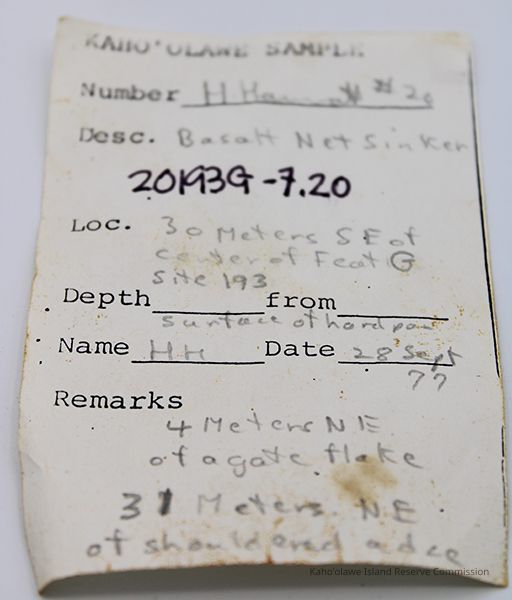 KAHO'OLAWE SAMPLE
Number H. # 20
Desc. Basalt Net Sinker
20193G-7.20
Loc. 30 Meters SE of
center of Feat G
Site 193
Depth from
surface of hardpan
Name HH Date 28 Sept
77
Remarks
4 Meters NE
of agate flake
31 Meters NE
of shouldered adze
Kaho'olawe Island Reserve Commission